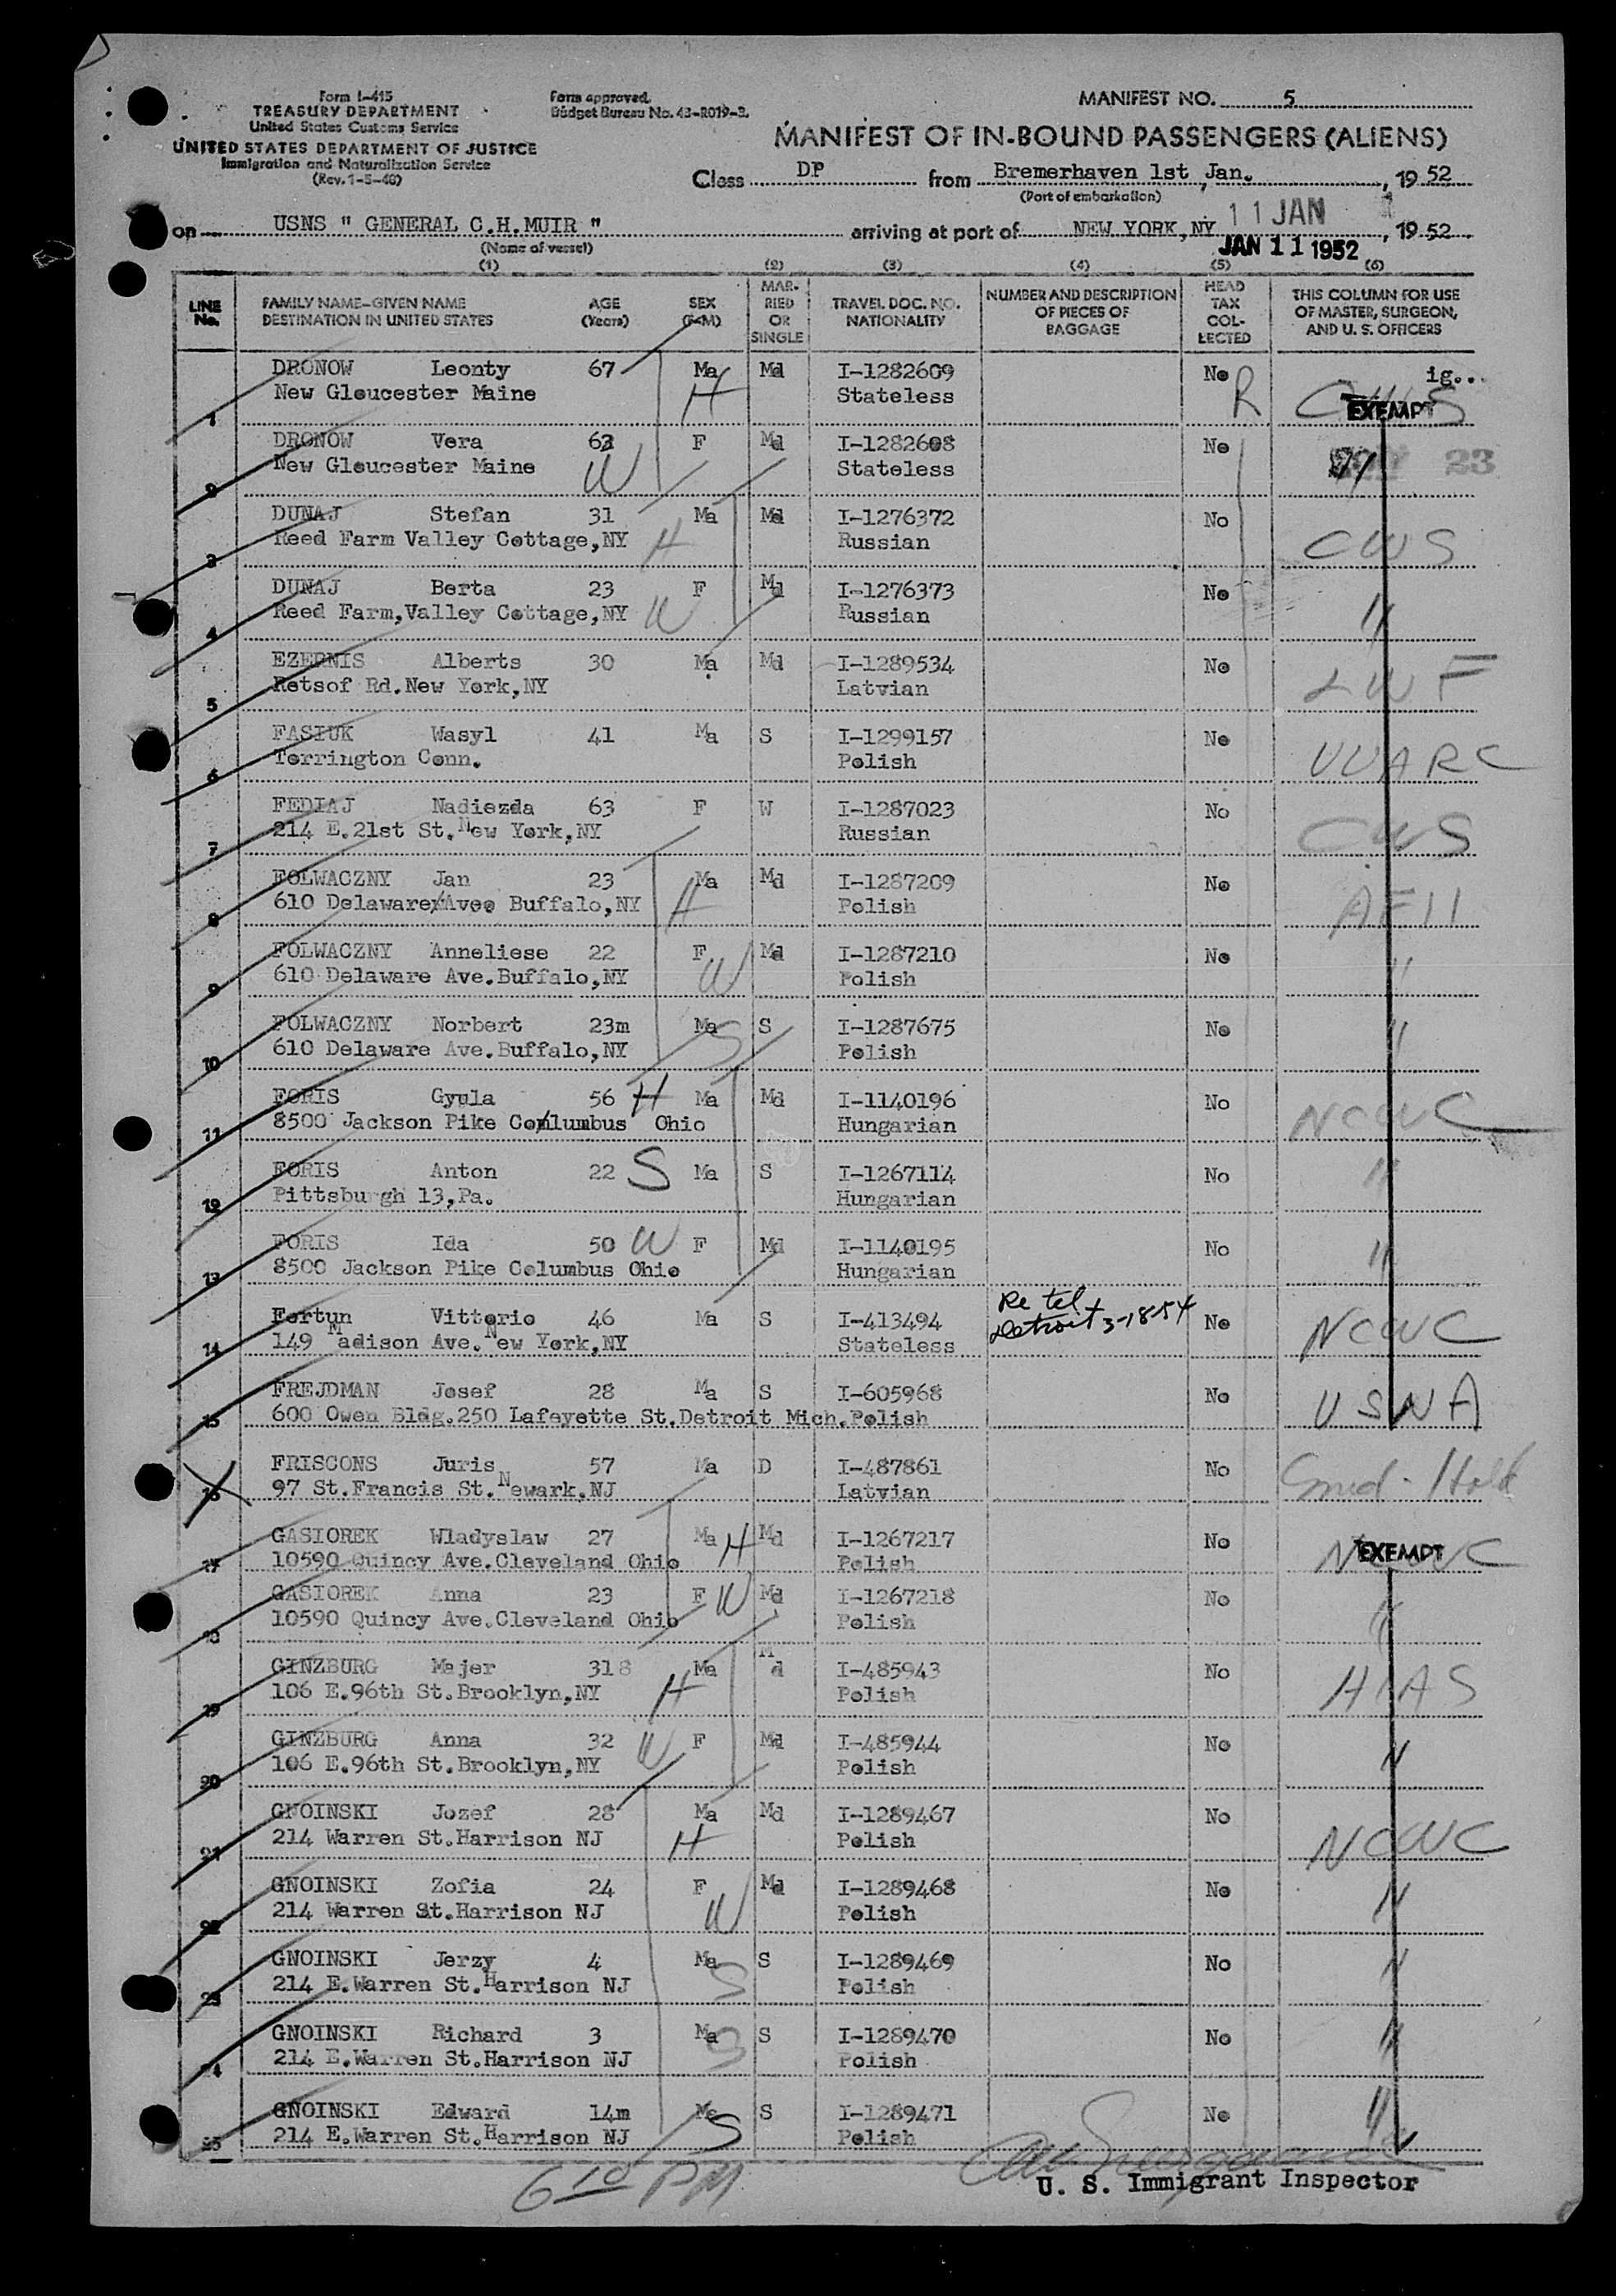 Form I-415
TREASURY DEPARTMENT
United States Customs Service
UNITED STATES DEPARTMENT OF JUSTICE
Immigration and Naturalization Service
(Rev. 1-5-48)
Form approved.
Budget Bureau No. 43-R019-3.
MANIFEST NO. 5
MANIFEST OF IN-BOUND PASSENGERS (ALIENS)
Class DP from Bremerhaven 1st, Jan., 19 52
(Port of embarkation)
11 JAN
on USNS " GENERAL C.H.MUIR " arriving at port of NEW YORK,NY, 19 52
(Name of vessel)
JAN 11 1952
(1) (2) (3) (4) (5) (6)
LINE No. FAMILY NAME-GIVEN NAME DESTINATION IN UNITED STATES AGE (Years) SEX (F-M) MAR-RIED OR SINGLE TRAVEL DOC. NO. NATIONALITY NUMBER AND DESCRIPTION OF PIECES OF BAGGAGE HEAD TAX COL-LECTED THIS COLUMN FOR USE OF MASTER, SURGEON, AND U. S. OFFICERS
DRONOW Leonty 67 Ma Md I-1282609 No ig..
1 New Gloucester Maine H Stateless R CWS EXEMPT
DRONOW Vera 63 F Md I-1282608 No
2 New Gloucester Maine W Stateless " 23
DUNAJ Stefan 31 Ma Md I-1276372 No
3 Reed Farm Valley Cottage,NY H Russian CWS
DUNAJ Berta 23 F Md I-1276373 No
4 Reed Farm,Valley Cottage,NY W Russian "
EZERNIS Alberts 30 Ma Md I-1289534 No
5 Retsof Rd.New York,NY Latvian LWF
FASIUK Wasyl 41 Ma S I-1299157 No
6 Torrington Conn. Polish UUARC
FEDIAJ Nadiezda 63 F W I-1287023 No
7 214 E.21st St.New York,NY Russian CWS
FOLWACZNY Jan 23 Ma Md I-1287209 No
8 610 Delaware/Ave. Buffalo,NY H Polish
FOLWACZNY Anneliese 22 F Md I-1287210 No
9 610 Delaware Ave.Buffalo,NY W Polish "
FOLWACZNY Norbert 23m Ma S I-1287675 No
10 610 Delaware Ave.Buffalo,NY S Polish "
FORIS Gyula 56 H Ma Md I-1140196 No
11 8500 Jackson Pike Co/lumbus Ohio Hungarian NCWC
FORIS Anton 22 S Ma S I-1267114 No
12 Pittsburgh 13,Pa. Hungarian "
FORIS Ida 50 W F Md I-1140195 No
13 8500 Jackson Pike Columbus Ohio Hungarian "
Fortun Vittorio 46 Ma S I-413494 Re tel Detroit 3-18-54 No
14 149 Madison Ave.New York,NY Stateless NCWC
FREJDMAN Josef 28 Ma S I-605968 No
15 600 Owen Bldg.250 Lafayette St.Detroit Mich.Polish USNA
FRISCONS Juris 57 Ma D I-487861 No
16 97 St.Francis St.Newark.NJ Latvian Hold
GASIOREK Wladyslaw 27 Ma H Md I-1267217 No
17 10590 Quincy Ave.Cleveland Ohio Polish NCWC EXEMPT
GASIOREK Anna 23 F W Md I-1267218 No
18 10590 Quincy Ave.Cleveland Ohio Polish "
GINZBURG Majer 318 Ma Md I-485943 No
19 106 E.96th St.Brooklyn,NY H Polish HIAS
GINZBURG Anna 32 W F Md I-485944 No
20 106 E.96th St.Brooklyn,NY Polish "
GNOINSKI Jozef 28 Ma Md I-1289467 No
21 214 Warren St.Harrison NJ H Polish NCWC
GNOINSKI Zofia 24 F Md I-1289468 No
22 214 Warren St.Harrison NJ W Polish "
GNOINSKI Jerzy 4 Ma S I-1289469 No
23 214 E.Warren St.Harrison NJ S Polish "
GNOINSKI Richard 3 Ma S I-1289470 No
24 214 E.Warren St.Harrison NJ S Polish "
GNOINSKI Edward 14m Ma S I-1289471 No
25 214 E.Warren St.Harrison NJ S Polish "
6 10 PM
U. S. Immigrant Inspector